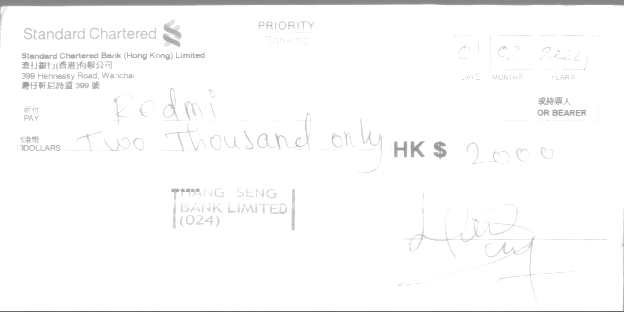 Standard Chartered
PRIORITY
Banking
Standard Chartered Bank (Hong Kong) Limited
渣打銀行(香港)有限公司
399 Hennessy Road, Wanchai
灣仔軒尼詩道 399 號
01 02
DATE MONTH YEAR
祈付
PAY
Redmi
或持票人
OR BEARER
港幣
DOLLARS
Two Thousand only
HK $ 2000
HANG SENG
BANK LIMITED
(024)